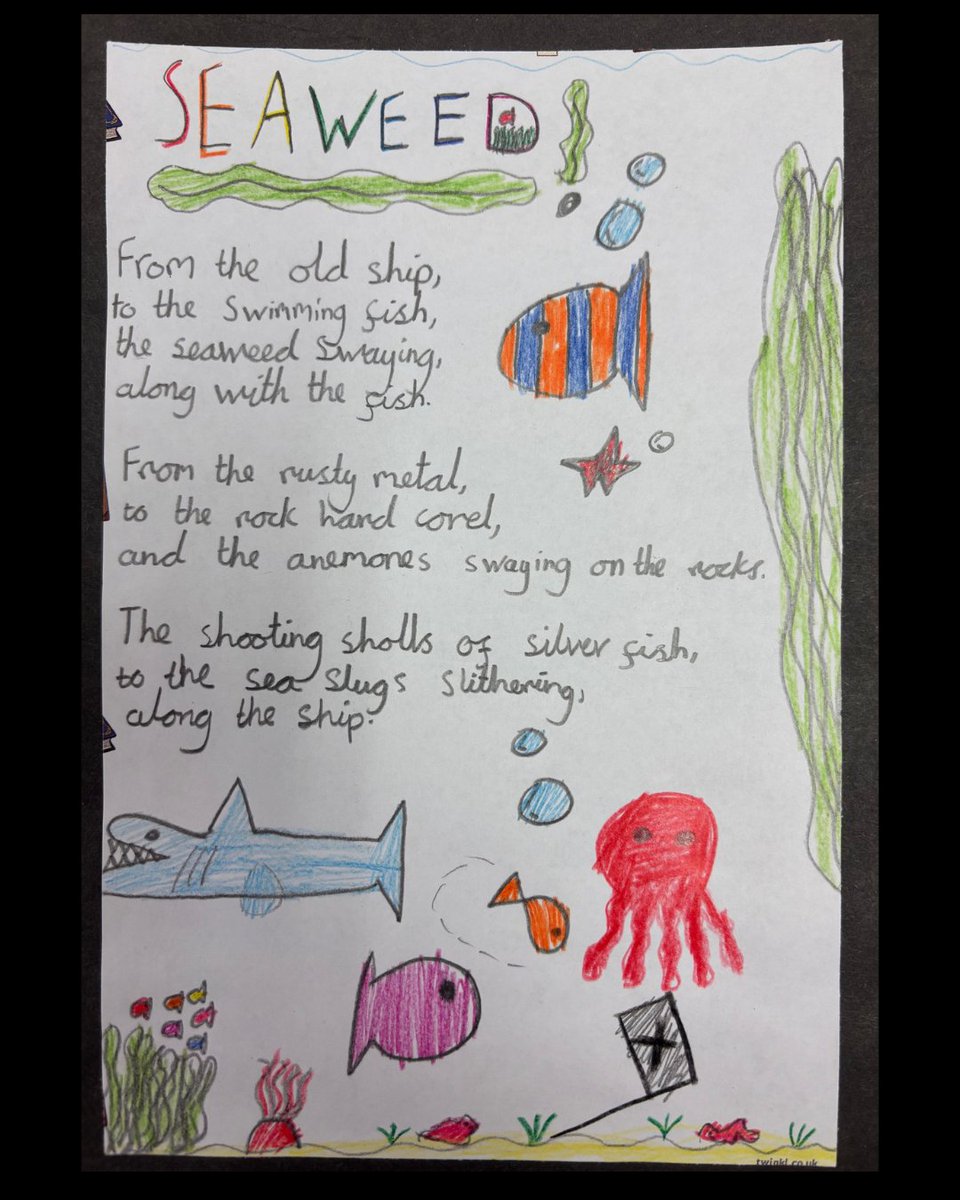 SEAWEED!
From the old ship,
to the swimming fish,
the seaweed swaying,
along with the fish.
From the rusty metal,
to the rock hard corel,
and the anemones swaying on the rocks.
The shooting sholls of silver fish,
to the sea slugs slithering,
along the ship.
twinkl.co.uk